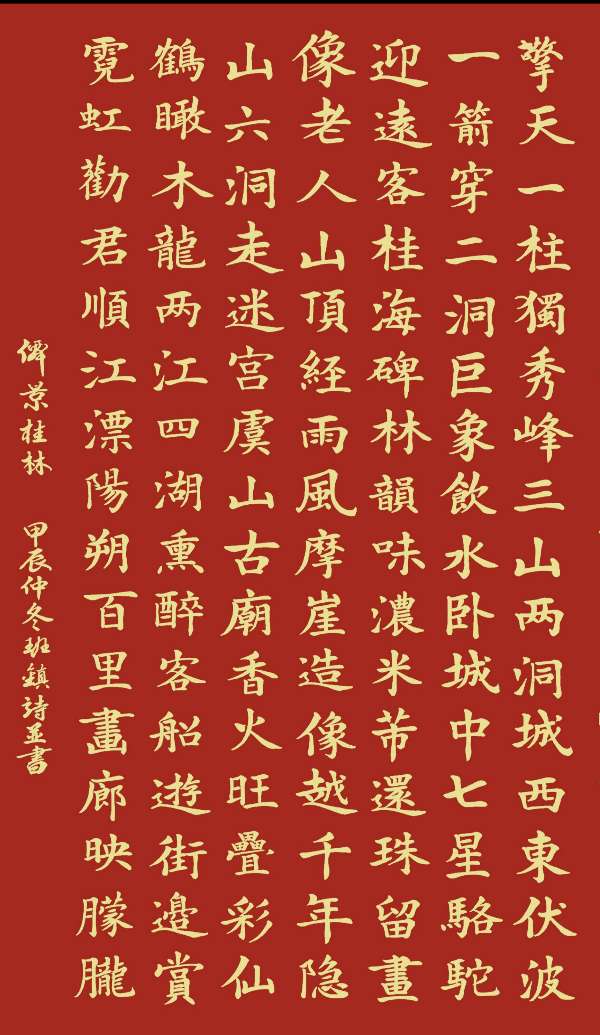 擎天一柱獨秀峰三山两洞城西東伏波
一箭穿二洞巨象飲水卧城中七星駱駝
迎遠客桂海碑林韻味濃米芾還珠留畫
像老人山頂經雨風摩崖造像越千年隐
山六洞走迷宫虞山古廟香火旺疊彩仙
鶴瞰木龍两江四湖熏醉客船遊街邊賞
霓虹勸君順江漂陽朔百里畫廊映朦朧
景桂林 甲辰仲冬班鎮詩並書